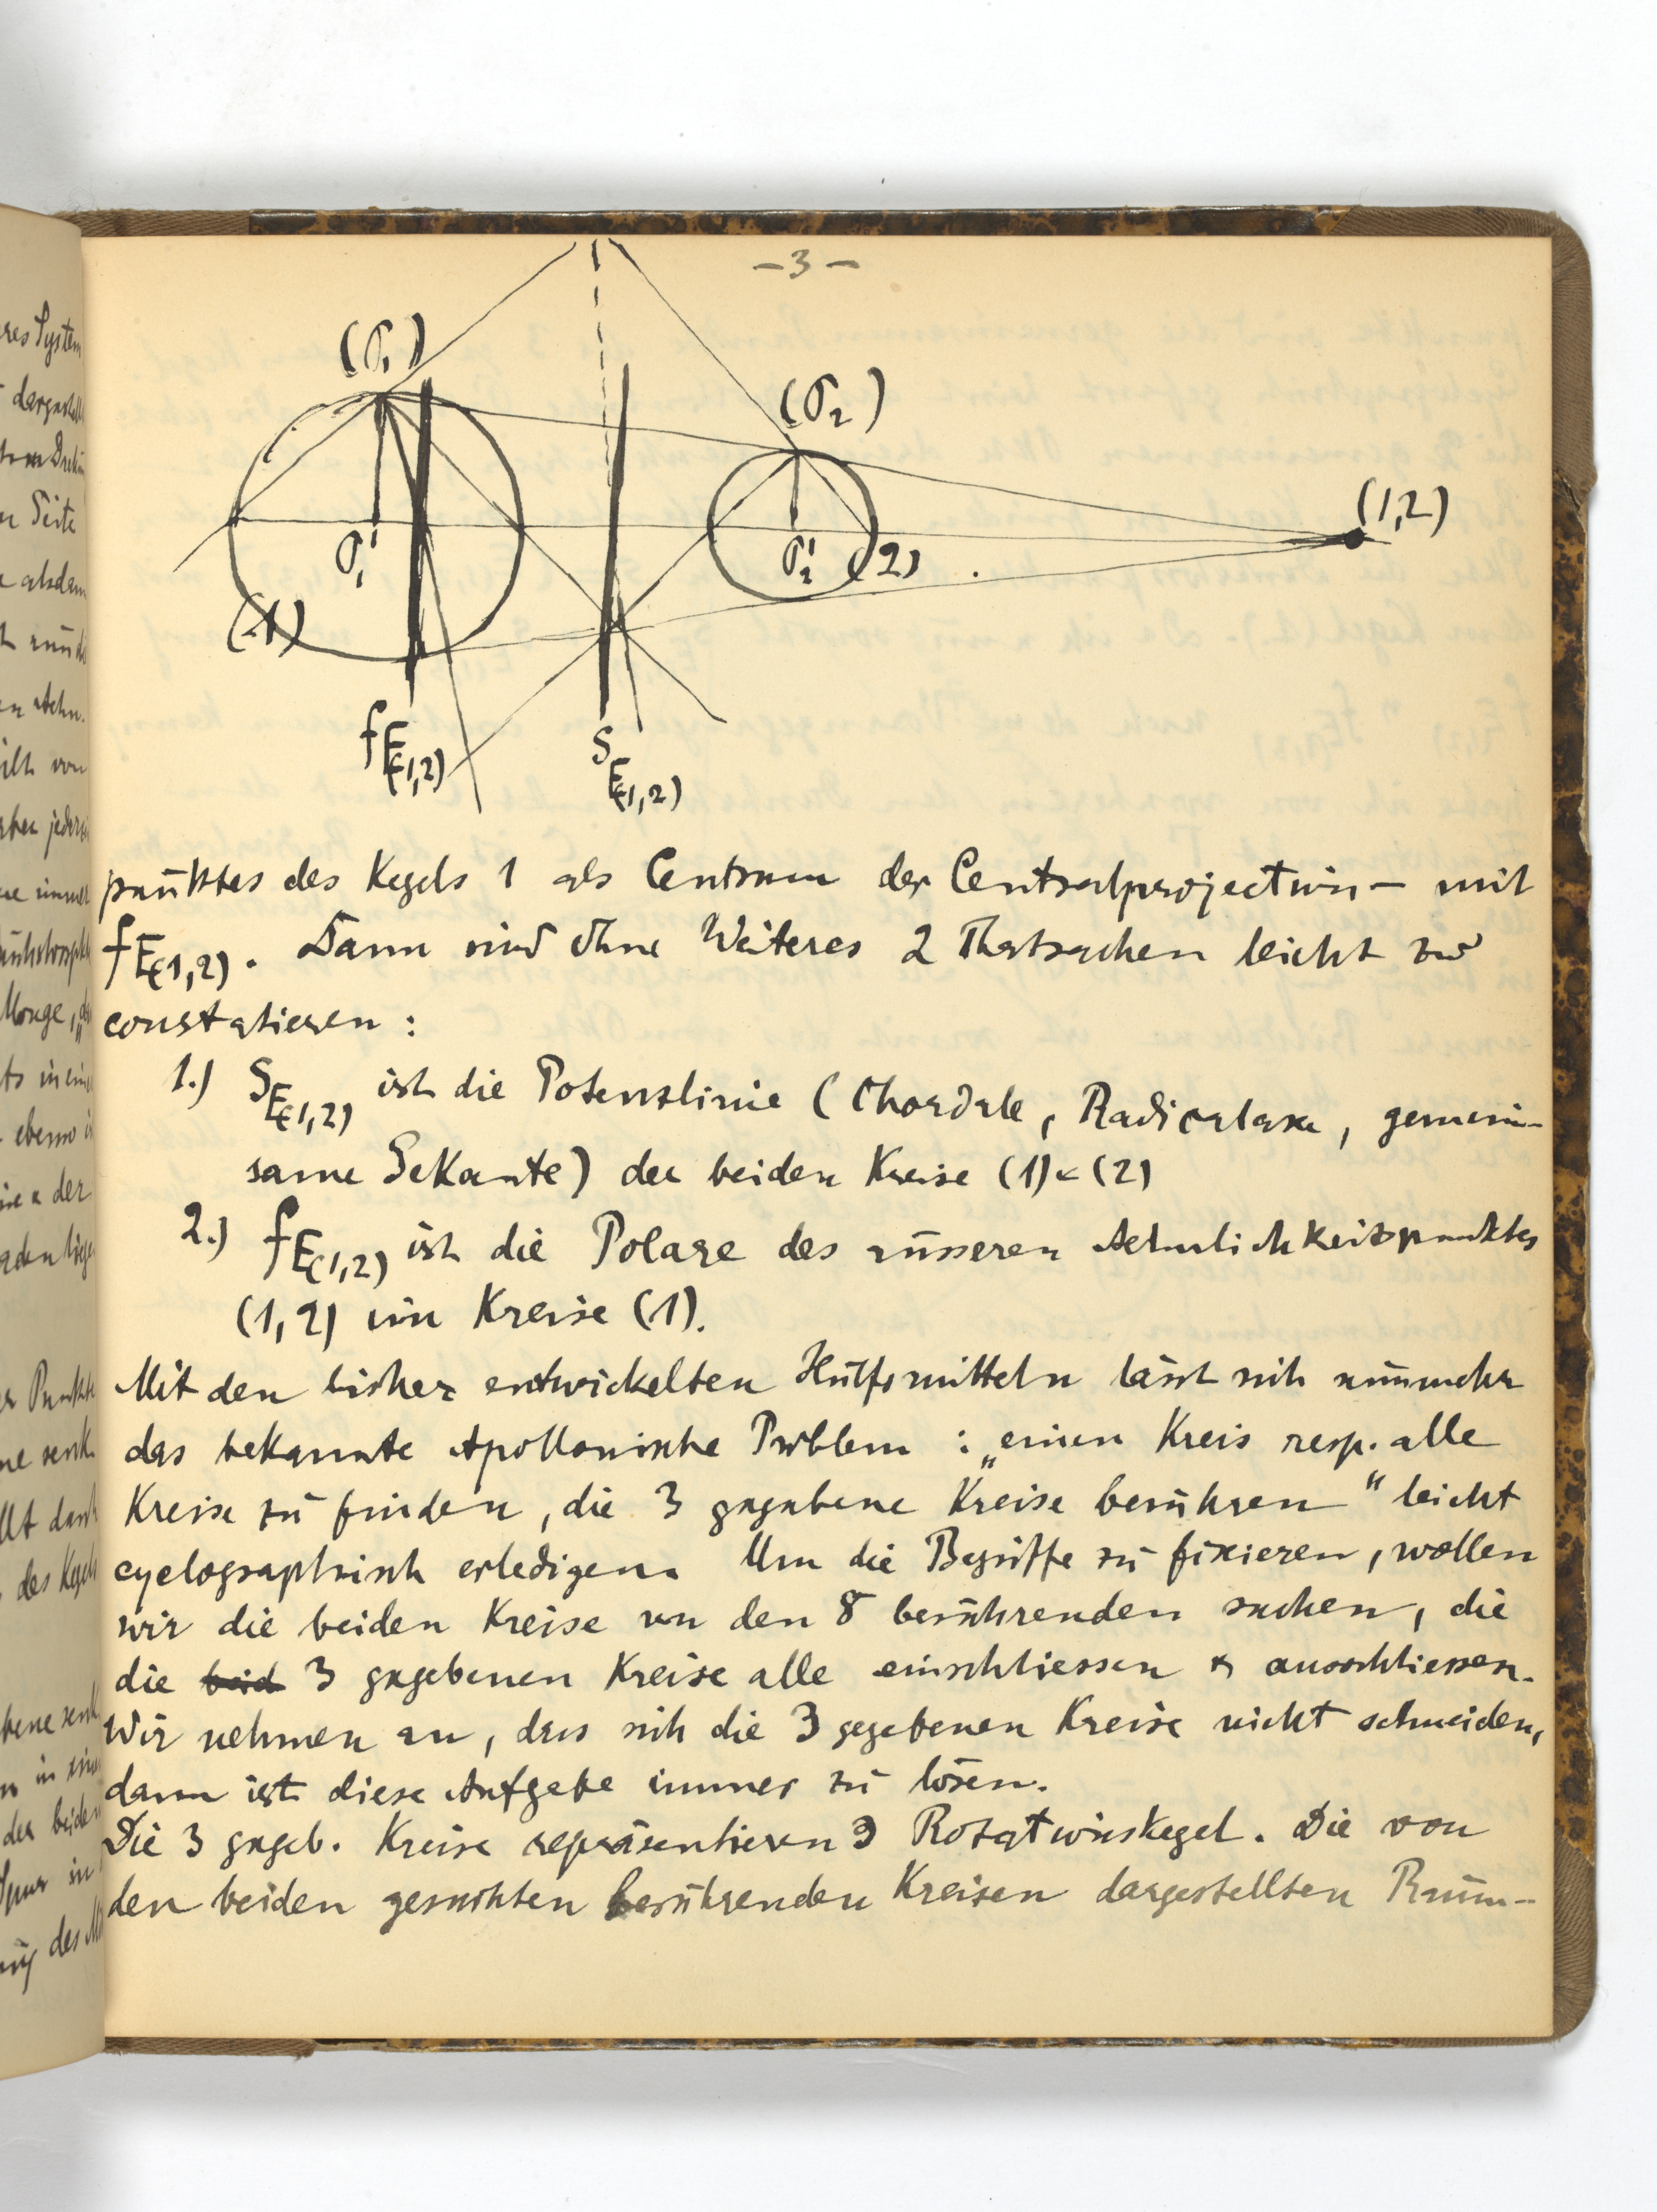 -3-
(σ₁)
(σ₂)
(1,2)
σ₁'
σ₂'
(2)
(1)
fE(1,2)
SE(1,2)
punktes des Kegels 1 als Centrum der Centralprojection – mit
fE(1,2). Dann sind ohne Weiteres 2 Thatsachen leicht zu
constatieren :
1.) SE(1,2) ist die Potenzlinie (Chordale, Radicalaxe, gemein-
same Sekante) der beiden Kreise (1) & (2)
2.) fE(1,2) ist die Polare des äusseren Aehnlichkeitspunktes
(1,2) im Kreise (1).
Mit den bisher entwickelten Hülfsmitteln lässt sich nunmehr
das bekannte Apollonische Problem : „einen Kreis resp. alle
Kreise zu finden, die 3 gegebene Kreise berühren“ leicht
cyclographisch erledigen. Um die Begriffe zu fixieren, wollen
wir die beiden Kreise von den 8 berührenden suchen, die
die beid 3 gegebenen Kreise alle einschliessen & ausschliessen.
Wir nehmen an, dass sich die 3 gegebenen Kreise nicht schneiden,
dann ist diese Aufgabe immer zu lösen.
Die 3 gegeb. Kreise repräsentieren 3 Rotationskegel. Die von
den beiden gesuchten berührenden Kreisen dargestellten Raum-
res System
Seite
Monge,
der
der beiden
in
des